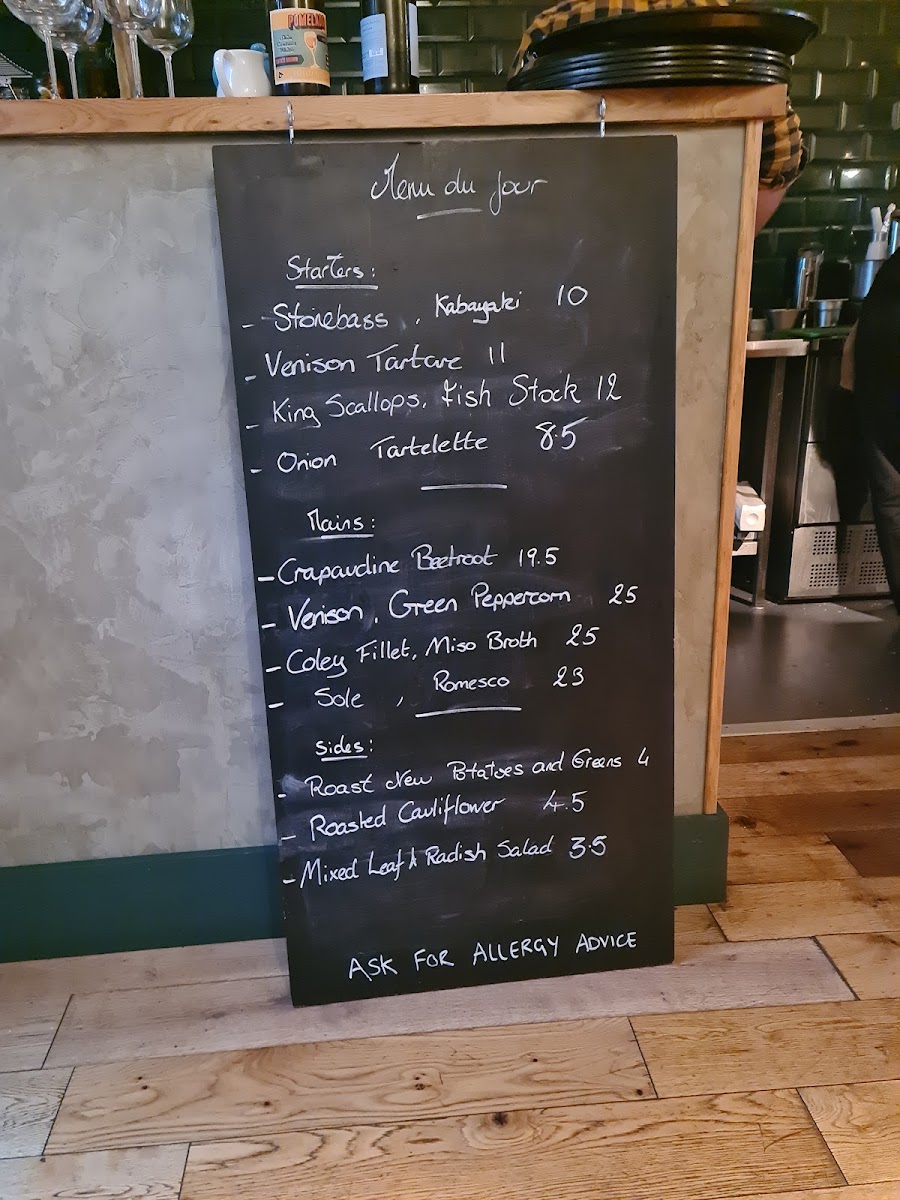 POMELO
Menu du Jour
Starters:
- Stonebass, Kabayaki 10
- Venison Tartare 11
- King Scallops, Fish Stock 12
- Onion Tartelette 8.5
Mains:
- Crapaudine Beetroot 19.5
- Venison, Green Peppercorn 25
- Coley Fillet, Miso Broth 25
- Sole, Romesco 23
Sides:
- Roast New Potatoes and Greens 4
- Roasted Cauliflower 4.5
- Mixed Leaf & Radish Salad 3.5
ASK FOR ALLERGY ADVICE